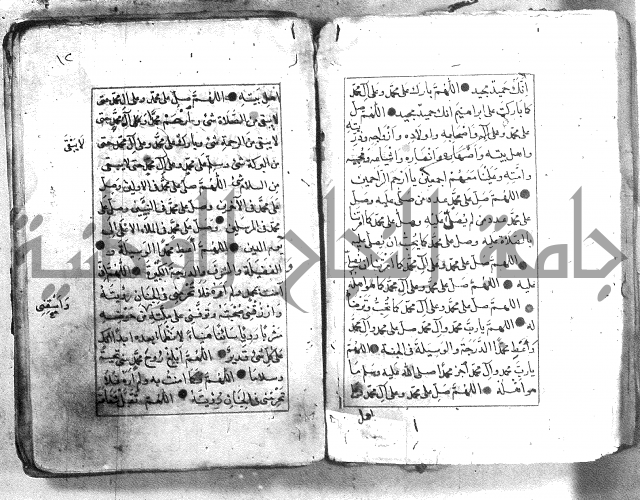 إنك حميد مجيد اللهم بارك على محمد وعلى آل محمد
كما باركت على إبراهيم إنك حميد مجيد اللهم صل
على محمد وعلى آله وأصحابه وأولاده وأزواجه وذريته
وأهل بيته وأصهاره وأنصاره وأشياعه ومحبيه
وأمته وعلينا معهم أجمعين يا أرحم الراحمين
اللهم صل على محمد عدد من صلى عليه وصل
على محمد عدد من لم يصل عليه وصل على محمد كما أمرتنا
بالصلاة عليه وصل على محمد كما يجب أن يصلى عليه
اللهم صل على محمد وعلى آل محمد كما أمرتنا أن نصلي
عليه اللهم صل على محمد وعلى آل محمد كما هو أهله
اللهم صل على محمد وعلى آل محمد كما تحب وترضى
له اللهم يا رب محمد وآل محمد صل على محمد وآل محمد
وأعط محمدا الدرجة والوسيلة في الجنة اللهم
يا رب محمد وآل محمد اجز محمدا صلى الله عليه وسلم ما
هو أهله اللهم صل على محمد وعلى آل محمد وعلى
أهل
١٢
أهل بيته اللهم صل على محمد وعلى آل محمد حتى
لا يبقى من الصلاة شيء وارحم محمدا وعلى آل محمد حتى
لا يبقى من الرحمة شيء وبارك على محمد وعلى آل محمد حتى
لا يبقى
من البركة شيء وسلم على محمد وعلى آل محمد حتى لا يبقى
من السلام شيء اللهم صل على محمد في الأولين وصل
على محمد في الآخرين وصل على محمد في النبيين وصل على
محمد في المرسلين وصل على محمد في الملإ الأعلى إلى
يوم الدين اللهم أعط محمدا الوسيلة و
الفضيلة والشرف والدرجة الكبيرة اللهم إني
آمنت بمحمد ولم أره فلا تحرمني في الجنان رؤيته
وارزقني صحبته وتوفني على ملته واسقني من حوضه
واسقني
مشربا رويا سائغا هنيئا لا نظمأ بعده أبدا إنك
على كل شيء قدير اللهم أبلغ روح محمد مني تحية
وسلاما اللهم كما آمنت به ولم أره فلا
تحرمني في الجنان رؤيته اللهم تقبل شفاعة
جامعة النجاح الوطنية